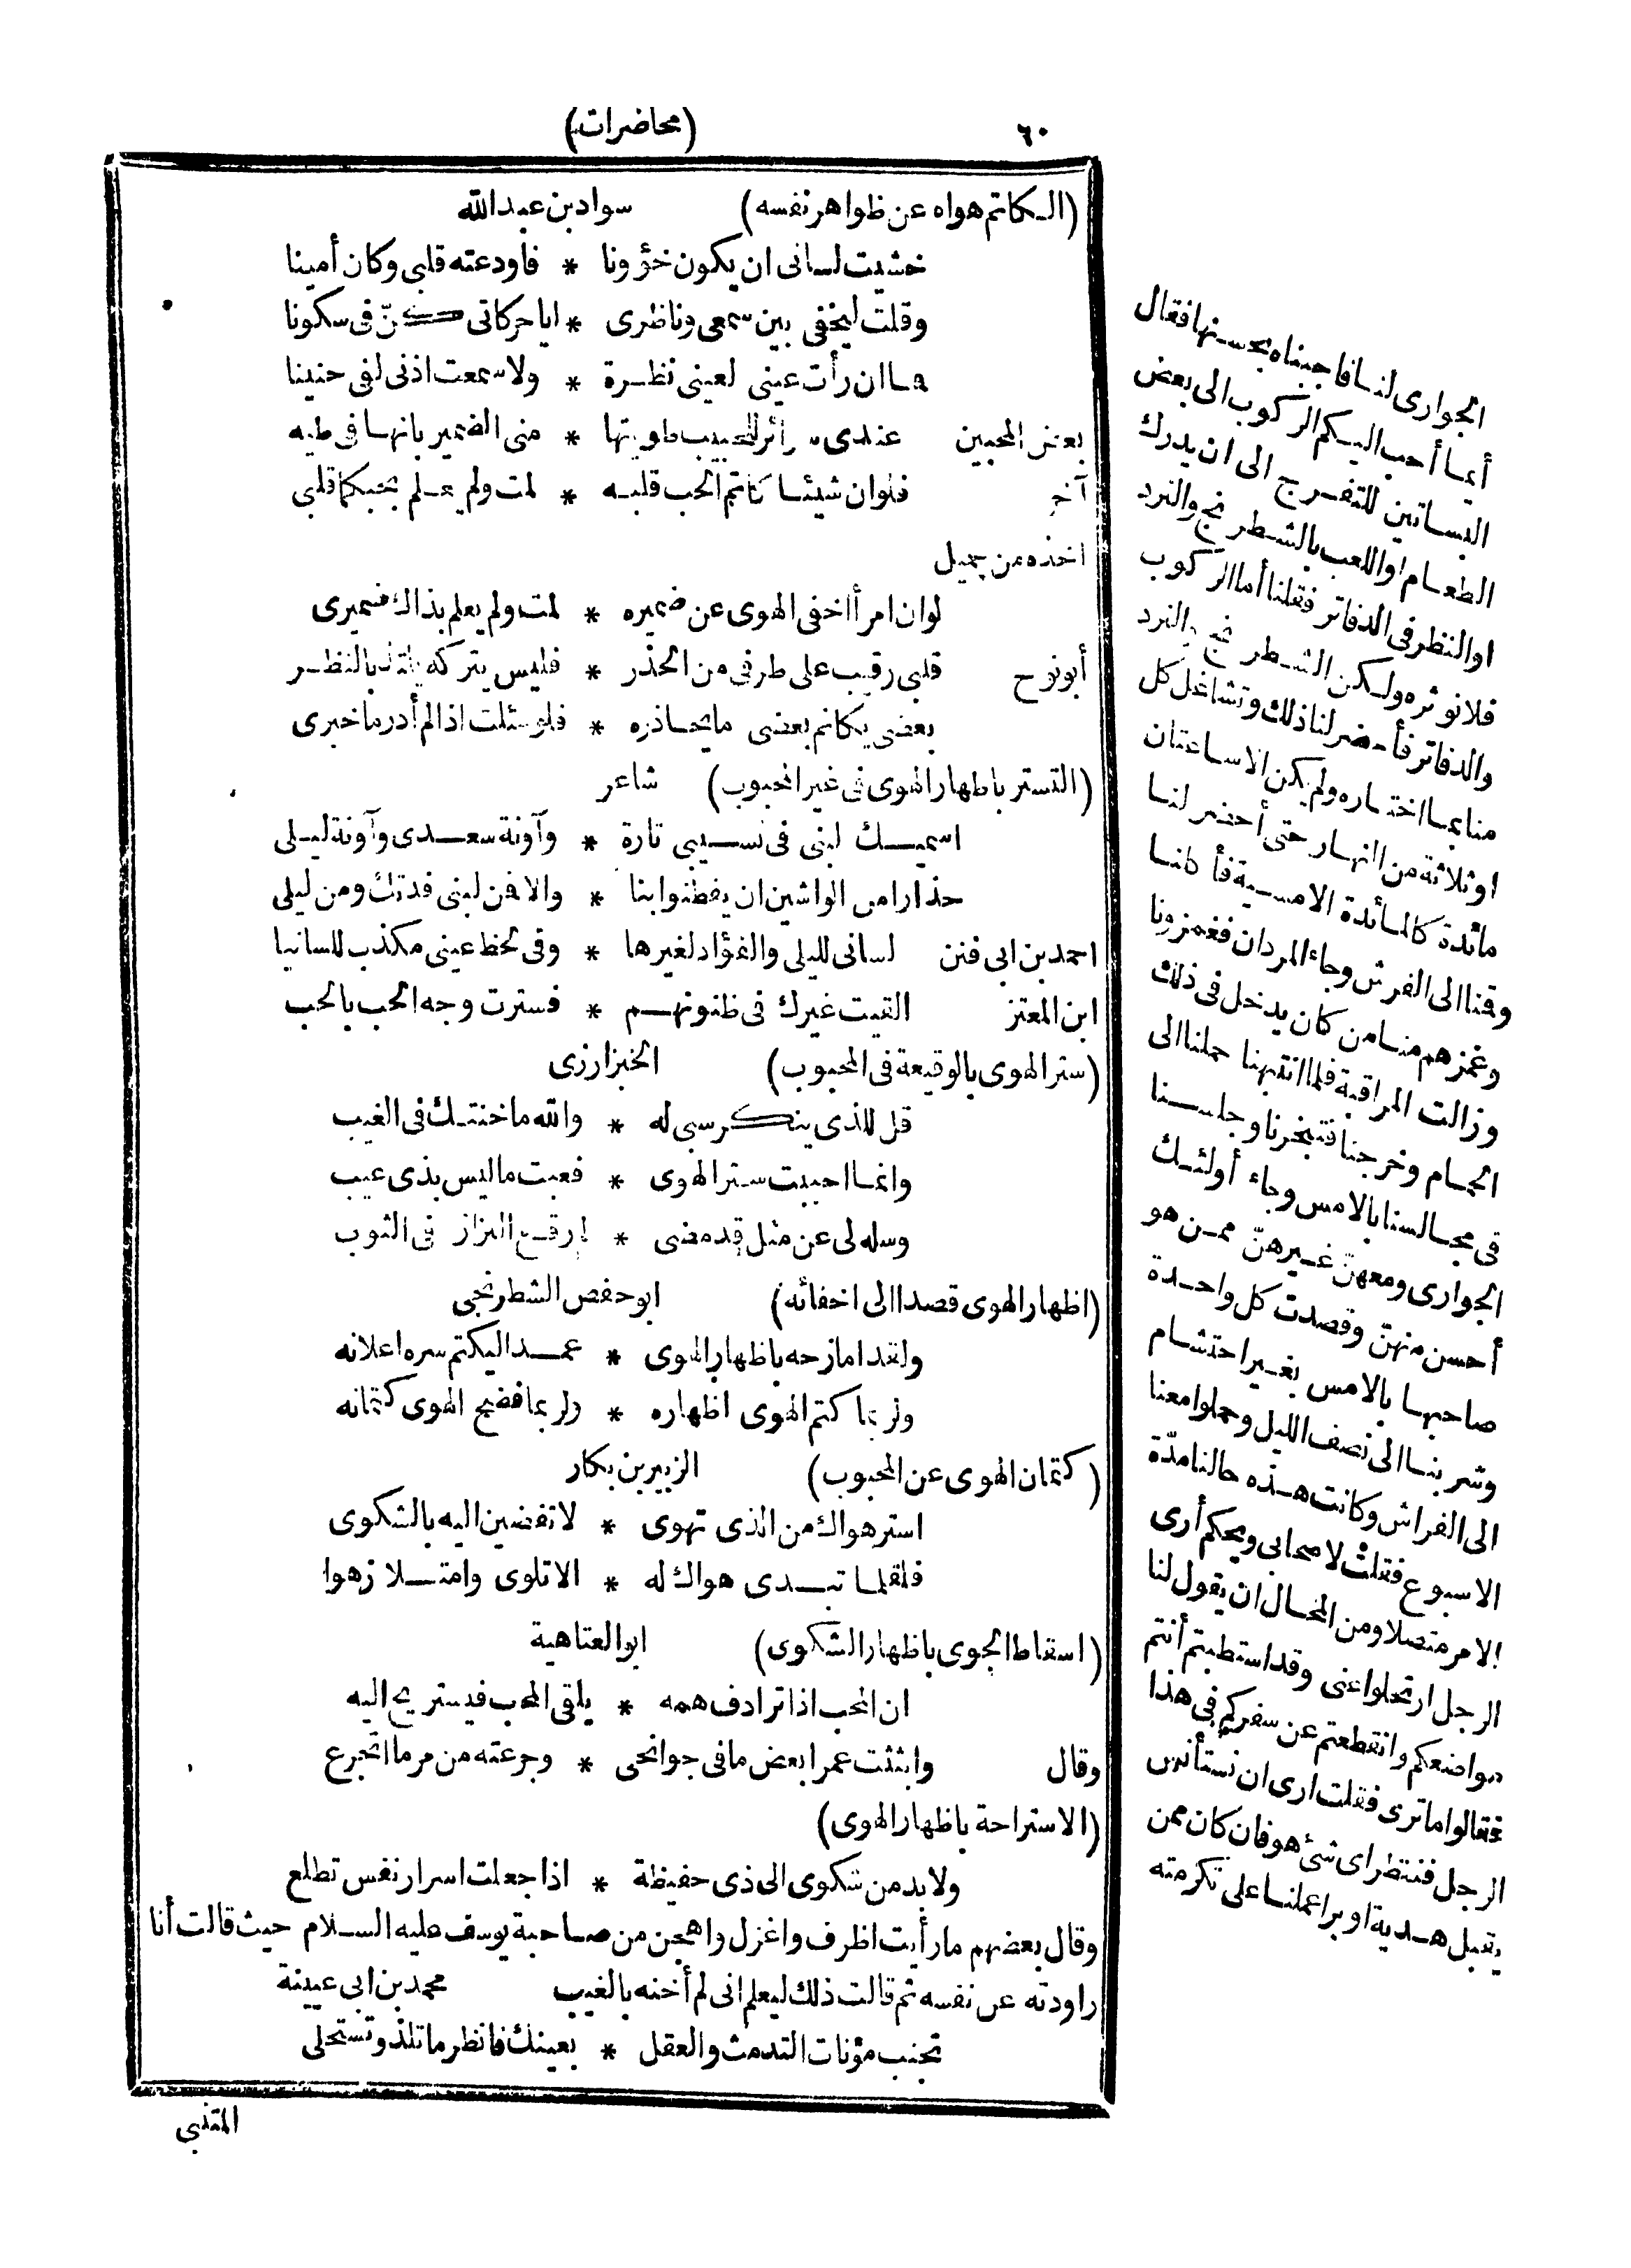 ٦٠
(محاضرات)
(الكاتم هواه عن ظواهر نفسه) سواد بن عبد الله
خشيت لسانى ان يكون خؤونا * فاودعته قلبى وكان أمينا
وقلت ليخفى بين سمعى وناظرى * ايا حركاتى كنّ فى سكونا
فما ان رأت عينى لعينى نظرة * ولا سمعت اذنى لفى حنينا
بعض المحبين عندى سرائر للحبيب طويتها * منى الضمير بانها فى طيه
آخر فلو ان شيئا كاتم الحب قلبه * لمت ولم يعلم بحبكما قلبى
اخذه من جميل
لو ان امرأ اخفى الهوى عن ضميره * لمت ولم يعلم بذاك ضميرى
أبو نوح قلبى رقيب على طرفى من الحذر * فليس يتركه بالنظر
بعضى يكاتم بعضى ما يحاذره * فلو سئلت اذا لم أدر ما خبرى
(التستر باظهار الهوى فى غير المحبوب) شاعر
اسميك لبنى فى نسيبى تارة * وآونة سعدى وآونة ليلى
حذارا من الواشين ان يفطنوا بنا * والا فمن لبنى فدتك ومن ليلى
احمد بن ابى فنن لسانى لليلى والفؤاد لغيرها * وفى لحظ عينى مكذب للسانيا
ابن المعتز القيت غيرك فى ظنونهم * فسترت وجه الحب بالحب
(ستر الهوى بالوقيعة فى المحبوب) الخبزارزى
قل للذى ينكر سبى له * والله ما خنتك فى الغيب
وانما احببت ستر الهوى * فعبت ما ليس بذى عيب
وسله لى عن مثل قد مضى * لم رقع البزاز فى الثوب
(اظهار الهوى قصدا الى اخفائه) ابو حفص الشطرنجى
ولقد امازحه باظهار الهوى * عمدا ليكتم سره اعلانه
ولربما كتم الهوى اظهاره * ولربما فضح الهوى كتمانه
(كتمان الهوى عن المحبوب) الزبير بن بكار
استر هواك من الذى تهوى * لا تفضين اليه بالشكوى
فلقلما تبدى هواك له * الا تلوى وامتلا زهوا
(اسقاط الجوى باظهار الشكوى) ابو العتاهية
ان المحب اذا ترادف همه * يلقى المحب فيستريح اليه
وقال وابثثت عمرا بعض ما فى جوانحى * وجرعته من مر ما اتجرع
(الاستراحة باظهار الهوى)
ولا بد من شكوى الى ذى حفيظة * اذا جعلت اسرار نفس تطلع
وقال بعضهم ما رأيت اظرف واغزل واهجن من صاحبة يوسف عليه السلام حيث قالت أنا
راودته عن نفسه ثم قالت ذلك ليعلم انى لم أخنه بالغيب محمد بن ابى عيينة
تجنب مؤنات التدمث والعقل * بعينك فانظر ما تلذ وتستحلى
المتنبى
الجوارى لنا فاجبناه بحسنها فقال
أيما أحب اليكم الركوب الى بعض
البساتين للتفرج الى ان يدرك
الطعام او اللعب بالشطرنج والنرد
او النظر فى الدفاتر فقلنا أما الركوب
فلا نوثره ولكن الشطرنج والنرد
والدفاتر فأحضر لنا ذلك وتشاغل كل
منا بما اختاره ولم يكن الا ساعتان
او ثلاثة من النهار حتى أحضر لنا
مائدة كالمائدة الامسية فأكلنا
وقمنا الى الفرش وجاء المردان فغمزونا
وغمزهم منا من كان يدخل فى ذلك
وزالت المراقبة فلما انتبهنا حملنا الى
الحمام وخرجنا فتبخرنا وجلسنا
فى مجالسنا بالامس وجاء أولئك
الجوارى ومعهن غيرهنّ ممن هو
أحسن منهنّ وقصدت كل واحدة
صاحبها بالامس بغير احتشام
وشربنا الى نصف الليل وحملوا معنا
الى الفراش وكانت هذه حالنا مدّة
الاسبوع فقلت لاصحابى ويحكم أرى
الامر متصلا ومن المحال ان يقول لنا
الرجل ارتحلوا عنى وقد استطبتم أنتم
مواضعكم وانقطعتم عن سفركم فى هذا
فقالوا ما ترى فقلت ارى ان نستأنس
الرجل فننتظر اى شئ هو فان كان ممن
يقبل هدية او برا عملنا على تكرمته